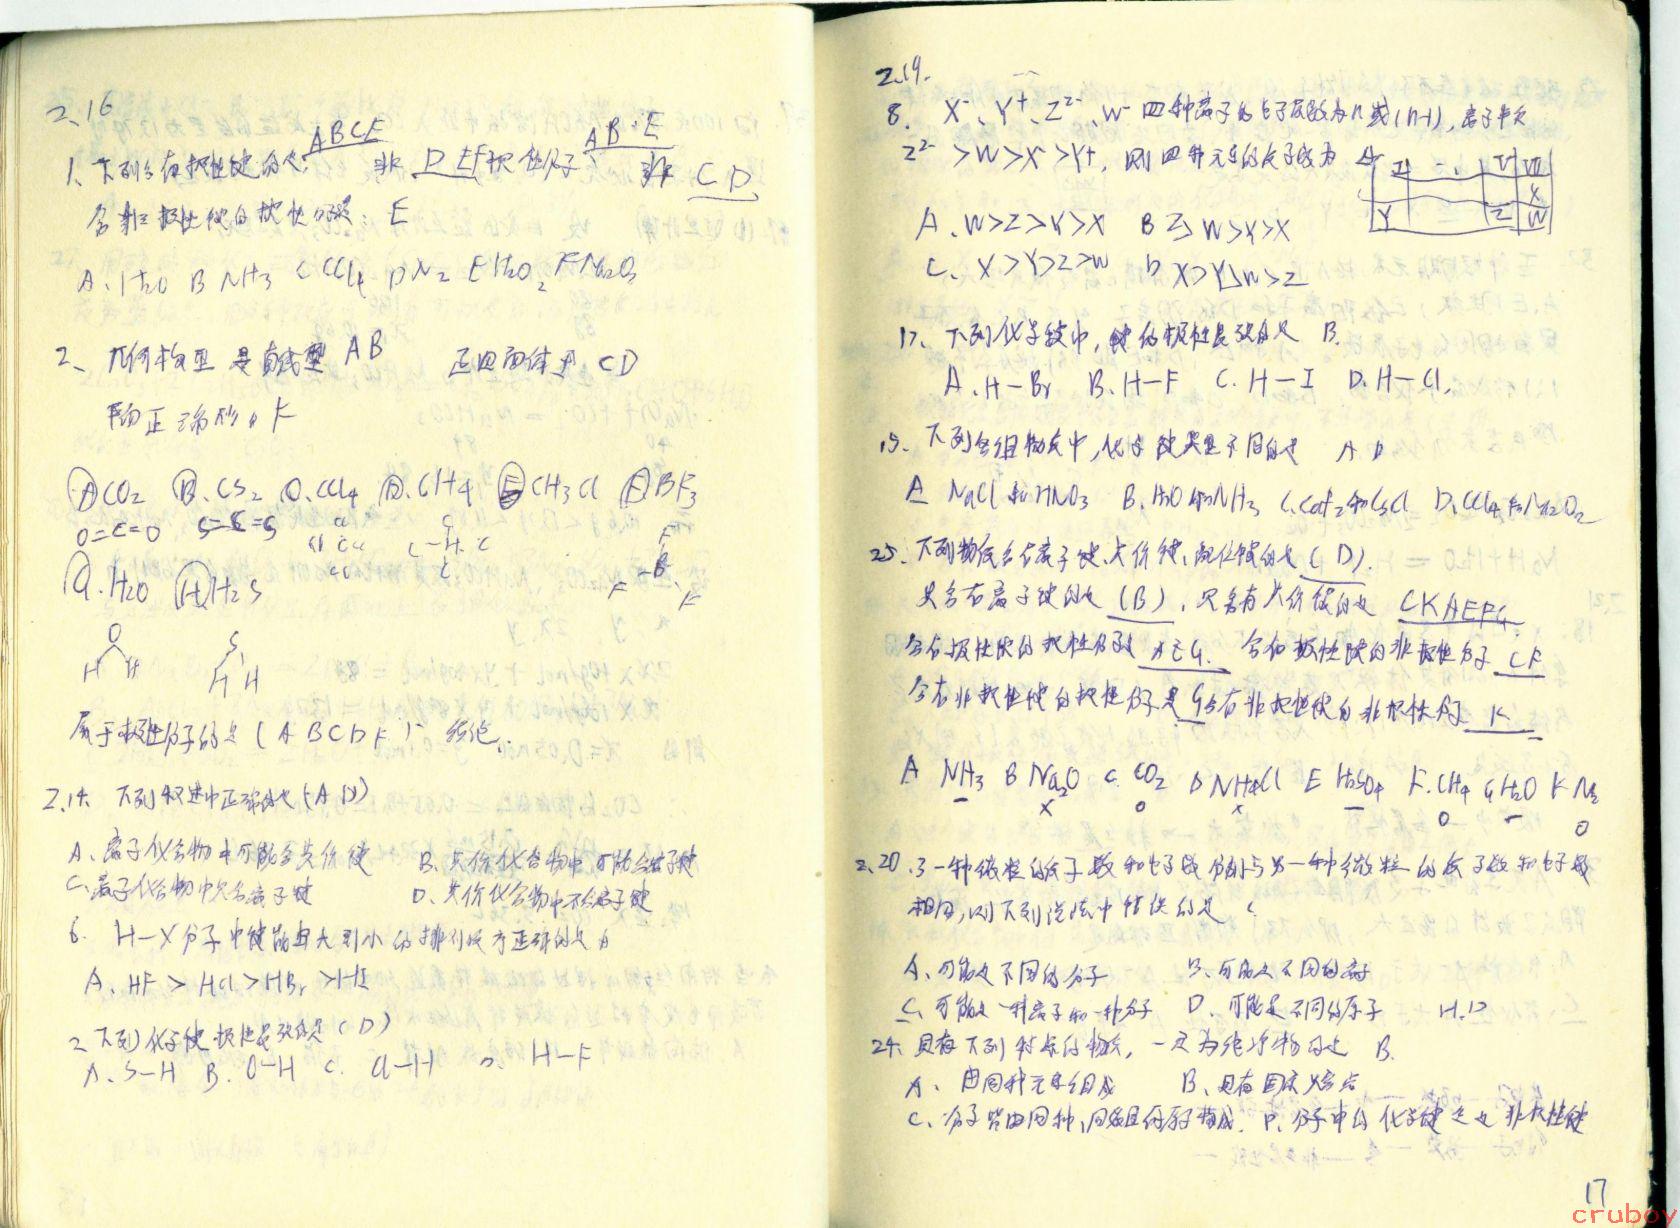 2.16
1、下列含有极性键的是 ABCE 非 DEF 极性分子 AB·E 非 CD
含非极性键的极性分子: E
A、H2O B NH3 C CCl4 D N2 E H2O2 F Na2O2
2、几何构型是直线型 AB 正四面体型 CD
F
A CO2 B. CS2 C. CCl4 D. CH4 E CH3Cl F BF3
O=C=O S=C=S
G. H2O H H2S
属于极性分子的是 ( A B C D F )
2.14. 下列叙述中正确的是(A D)
A、离子化合物中可能含共价键 B、共价化合物中可能含离子键
C、离子化合物中只含离子键 D、共价化合物中不含离子键
6. H-X分子中键能由大到小的排列顺序正确的是A
A、HF > HCl > HBr > HI
2、下列化学键极性最强的是(D)
A、S-H B. O-H C. Cl-H D. H-F
2.19.
8. X-、Y+、Z2-、W- 四种离子的电子层数为n或(n-1), 离子半径
Z2- >W->X->Y+, 则四种元素的原子序为 A
A、W>Z>Y>X B Z>W>Y>X
C、X>Y>Z>W D X>Y>W>Z
I VI VII
X
Y Z W
17、下列化学键中,键的极性最强的是 B.
A. H-Br B. H-F C. H-I D. H-Cl.
19、下列各组物质中,化学键类型不同的是 A D
A NaCl和HNO3 B. H2O和NH3 C. CaF2和CsCl D. CCl4和Na2O2
25、下列物质含有离子键、共价键、配位键的是 (D).
只含有离子键的是 (B), 只含有共价键的是 CKAEFG.
含有极性键的极性分子是 AEG. 含有极性键的非极性分子 CF
含有非极性键的极性分子是 G 含有非极性键的非极性分子 K
A NH3 B Na2O C. CO2 D NH4Cl E H2SO4 F. CH4 G H2O K N2
2.20. 3 一种微粒的质子数和电子数分别与另一种微粒的质子数和电子数
相同, 则下列说法中错误的是 C
A、可能是不同的分子 B、可能是不同的离子
C、可能是一种离子和一种分子 D、可能是不同的原子 H. D
24、具有下列特点的物质, 一定为纯净物的是 B.
A、由同种元素组成 B、具有固定熔沸点
C、分子皆由同种、同数目的原子构成. D、分子中的化学键是非极性键
17
cruboy